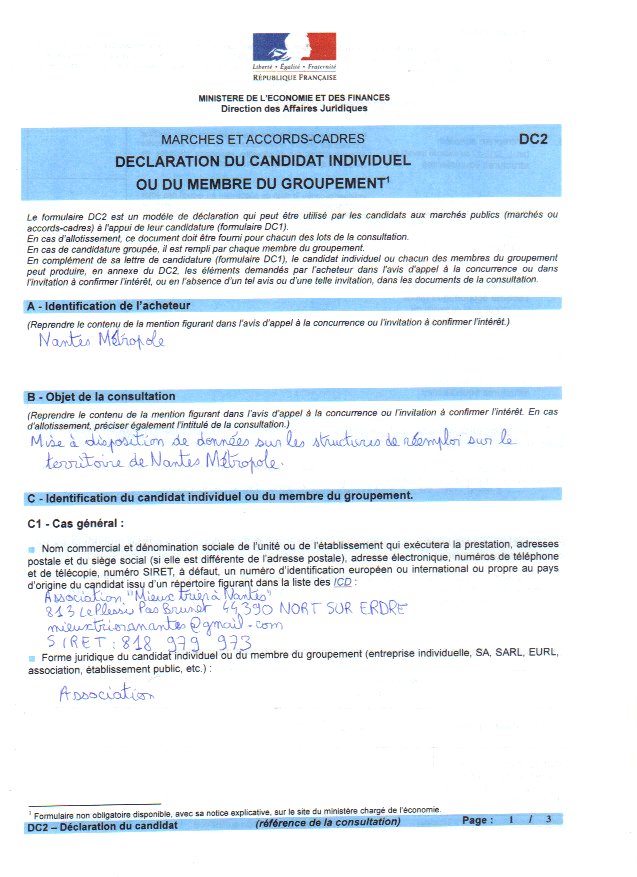 Liberté • Égalité • Fraternité
RÉPUBLIQUE FRANÇAISE
MINISTERE DE L'ECONOMIE ET DES FINANCES
Direction des Affaires Juridiques
MARCHES ET ACCORDS-CADRES DC2
DECLARATION DU CANDIDAT INDIVIDUEL
OU DU MEMBRE DU GROUPEMENT1
Le formulaire DC2 est un modèle de déclaration qui peut être utilisé par les candidats aux marchés publics (marchés ou
accords-cadres) à l'appui de leur candidature (formulaire DC1).
En cas d'allotissement, ce document doit être fourni pour chacun des lots de la consultation.
En cas de candidature groupée, il est rempli par chaque membre du groupement.
En complément de sa lettre de candidature (formulaire DC1), le candidat individuel ou chacun des membres du groupement
peut produire, en annexe du DC2, les éléments demandés par l'acheteur dans l'avis d'appel à la concurrence ou dans
l'invitation à confirmer l'intérêt, ou en l'absence d'un tel avis ou d'une telle invitation, dans les documents de la consultation.
A - Identification de l'acheteur
(Reprendre le contenu de la mention figurant dans l'avis d'appel à la concurrence ou l'invitation à confirmer l'intérêt.)
Nantes Métropole
B - Objet de la consultation
(Reprendre le contenu de la mention figurant dans l'avis d'appel à la concurrence ou l'invitation à confirmer l'intérêt. En cas
d'allotissement, préciser également l'intitulé de la consultation.)
Mise à disposition de données sur les structures de réemploi sur le
territoire de Nantes Métropole.
C - Identification du candidat individuel ou du membre du groupement.
C1 - Cas général :
Nom commercial et dénomination sociale de l'unité ou de l'établissement qui exécutera la prestation, adresses
postale et du siège social (si elle est différente de l'adresse postale), adresse électronique, numéros de téléphone
et de télécopie, numéro SIRET, à défaut, un numéro d'identification européen ou international ou propre au pays
d'origine du candidat issu d'un répertoire figurant dans la liste des ICD :
Association "Mieux trier à Nantes"
813 Le Plessis Pas Brunet 44390 NORT SUR ERDRE
mieuxtrieranantes@gmail.com
SIRET : 818 979 973
Forme juridique du candidat individuel ou du membre du groupement (entreprise individuelle, SA, SARL, EURL,
association, établissement public, etc.) :
Association
1 Formulaire non obligatoire disponible, avec sa notice explicative, sur le site du ministère chargé de l'économie.
DC2 – Déclaration du candidat (référence de la consultation) Page : 1 / 3